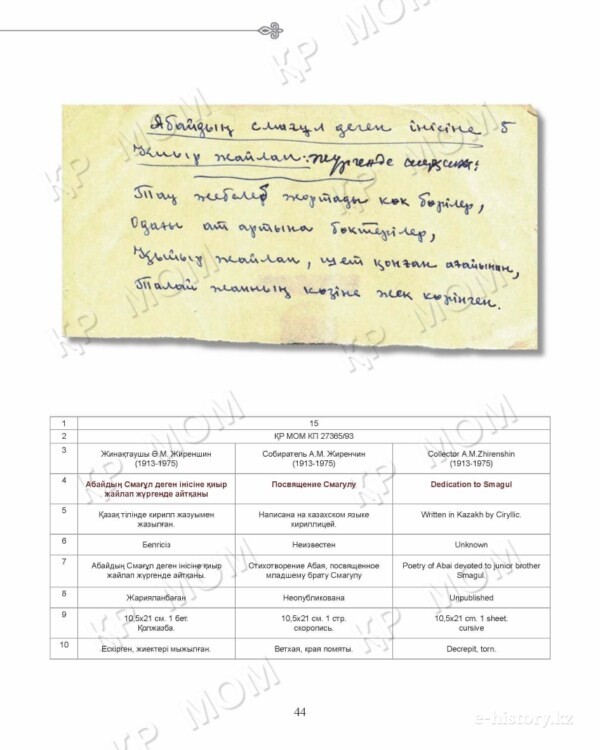 ҚР МОМ
Абайдың Смағұл деген інісіне 5
Қиыр жайлап жүргенде айтқаны:
Тау жебелеб жортады көк бөрілер,
Одағы ат артына бөктерілер,
Қыйыр жайлап, шет қонған ағайынның,
Талай жанның көзіне жек көрінген.
1 15
2 ҚР МОМ КП 27365/93
3 Жинақтаушы Ә.М. Жиреншин Собиратель А.М. Жиренчин Collector A.M.Zhirenshin
(1913-1975) (1913-1975) (1913-1975)
4 Абайдың Смағұл деген інісіне қиыр Посвящение Смагулу Dedication to Smagul
жайлап жүргенде айтқаны
5 Қазақ тілінде кирилл жазуымен Написана на казахском языке Written in Kazakh by Ciryllic.
жазылған. кириллицей.
6 Белгісіз Неизвестен Unknown
7 Абайдың Смағұл деген інісіне қиыр Стихотворение Абая, посвященное Poetry of Abai devoted to junior brother
жайлап жүргенде айтқаны. младшему брату Смагулу Smagul.
8 Жарияланбаған Неопубликована Unpublished
9 10,5х21 см. 1 бет. 10,5х21 см. 1 стр. 10,5х21 cm. 1 sheet.
Қолжазба. скоропись. cursive
10 Ескірген, жиектері мыжылған. Ветхая, края помяты. Decrepit, torn.
44
e-history.kz